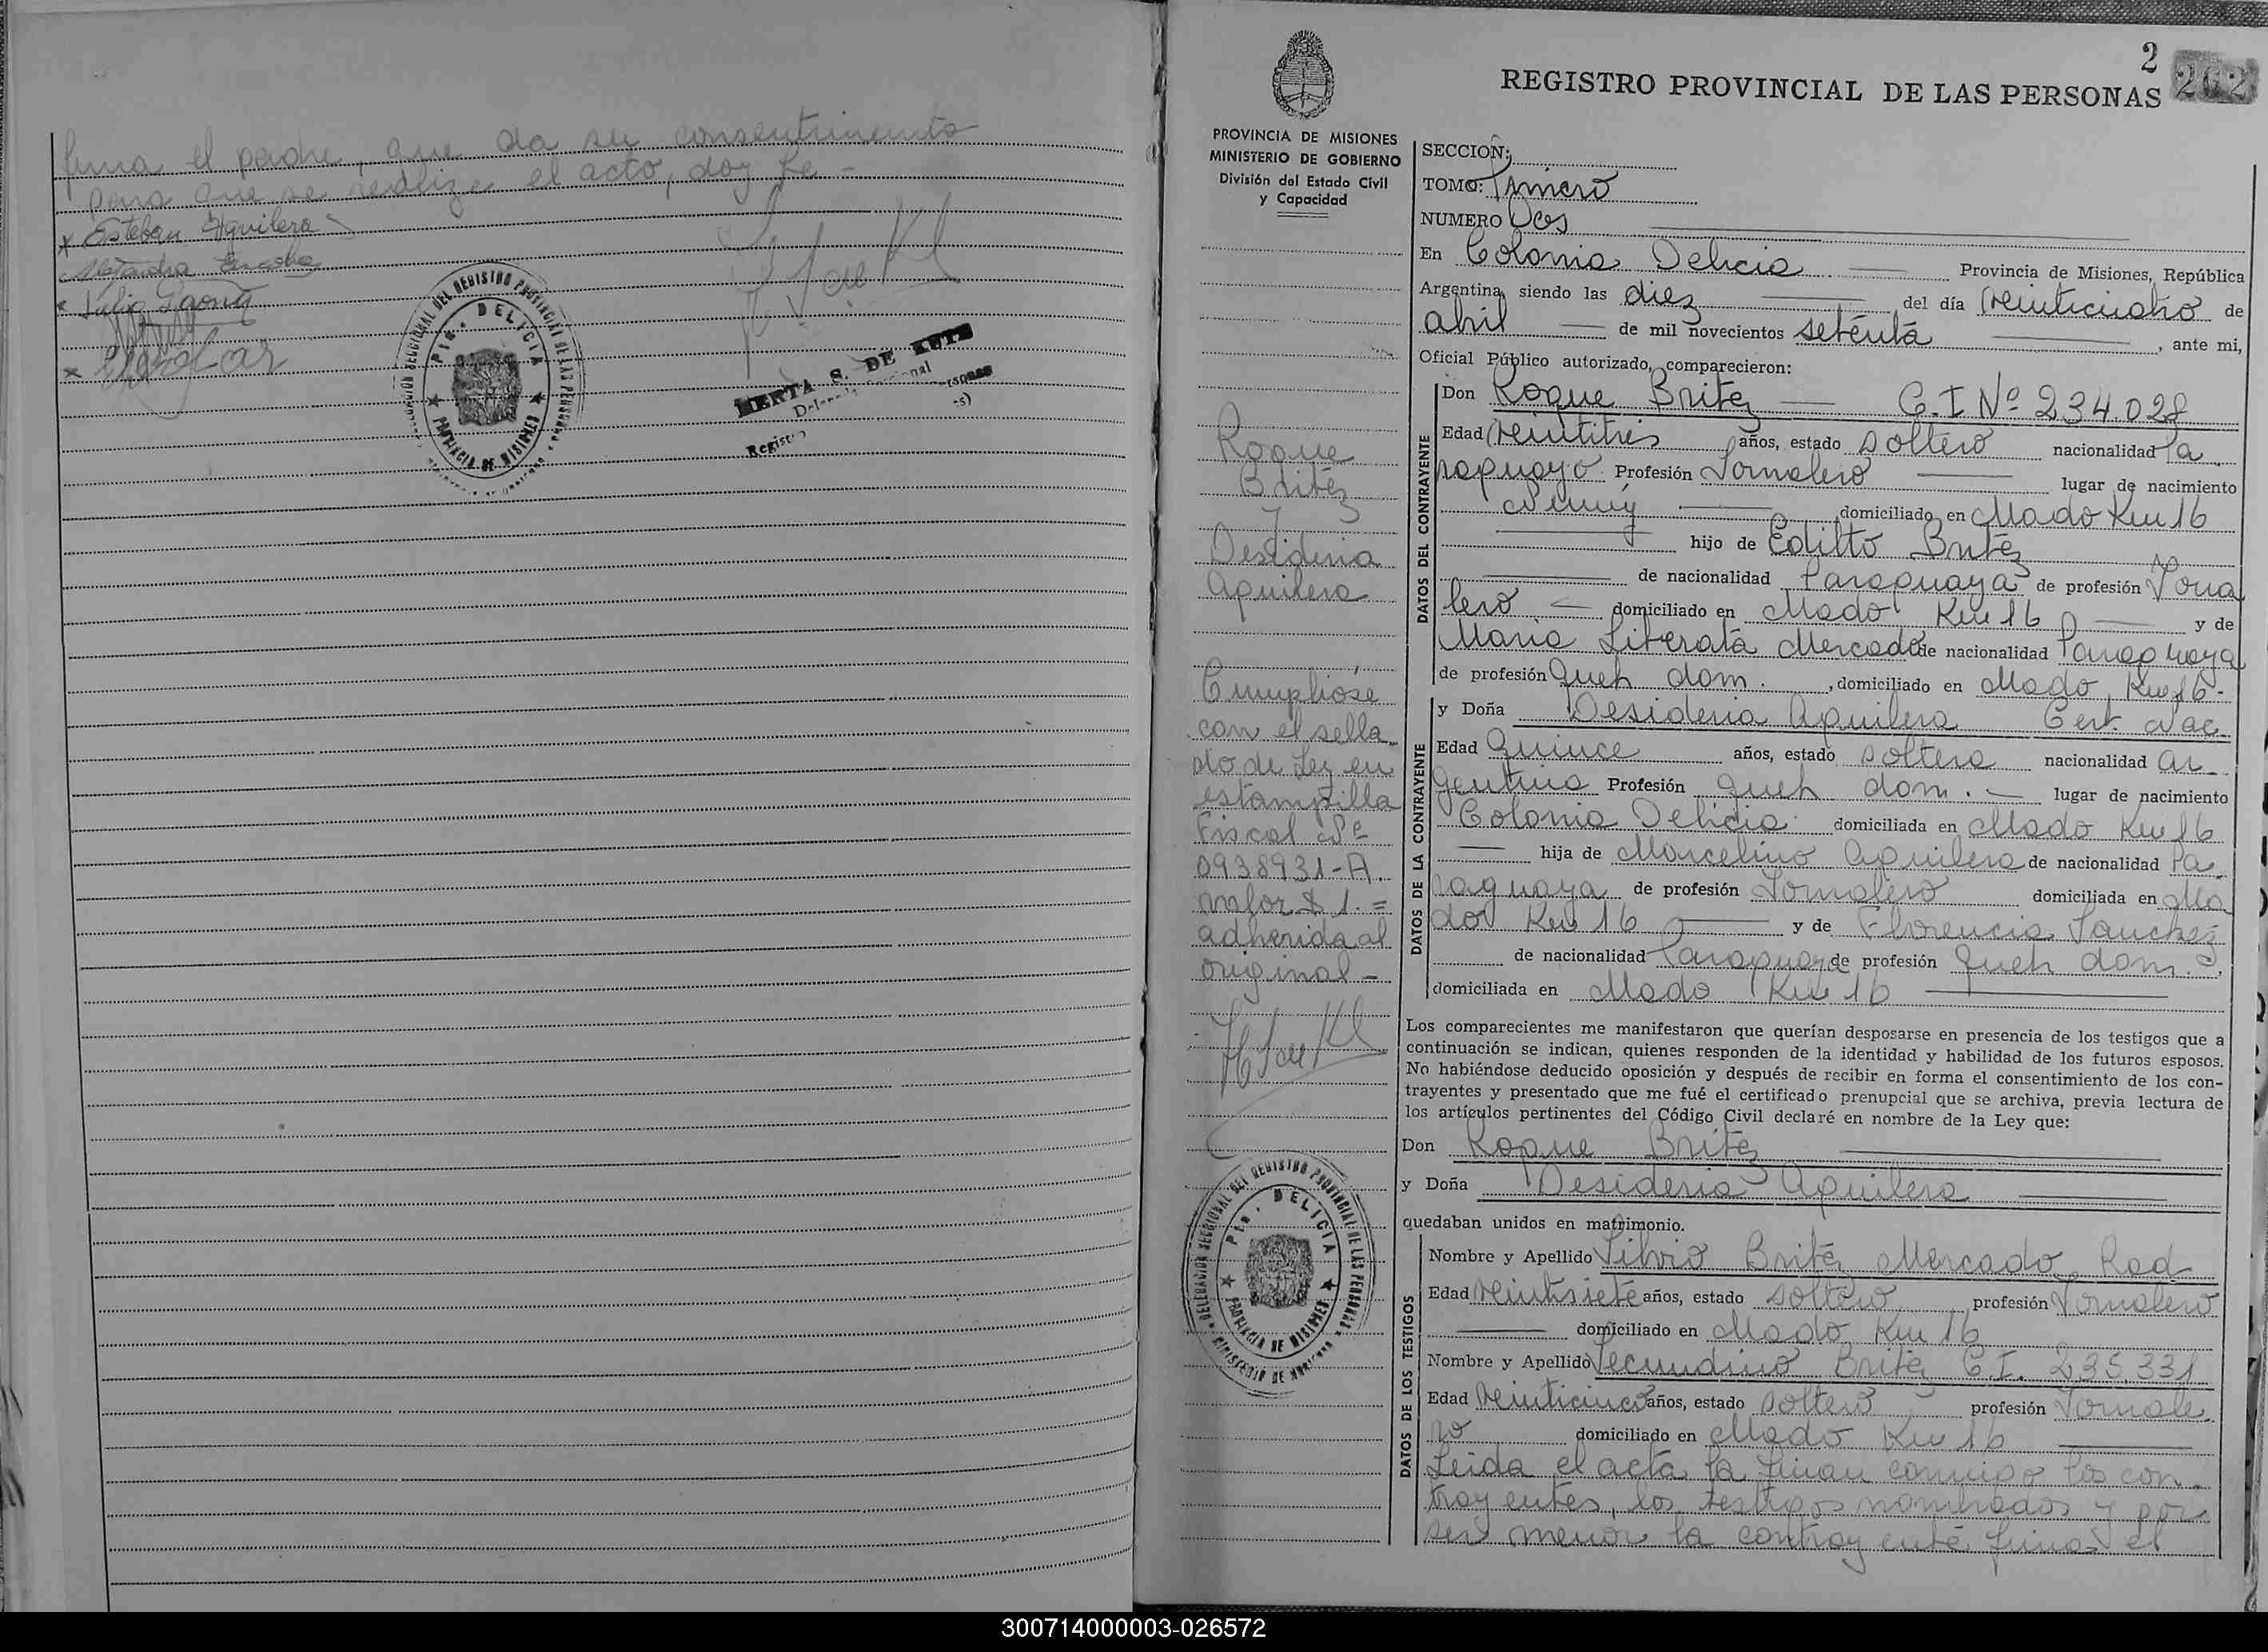 firma el padre, que da su consentimiento
para que se realize el acto, doy fe -
x Esteban Aguilera
Alejandra
x Julio
x
DELEGACION SECCIONAL DEL REGISTRO PROVINCIAL DE LAS PERSONAS
Pto. DELICIA
PROVINCIA DE MISIONES
S. DE
2
262
REGISTRO PROVINCIAL DE LAS PERSONAS
PROVINCIA DE MISIONES
MINISTERIO DE GOBIERNO
División del Estado Civil
y Capacidad
Roque
Britez
y
Desideria
Aguilera
Cumplióse
con el sella-
do de Ley en
estampilla
Fiscal
0938931-A.
valor $ 1.=
adherida al
original-
DELEGACION SECCIONAL DEL REGISTRO PROVINCIAL DE LAS PERSONAS
Pto. DELICIA
PROVINCIA DE MISIONES
SECCION:
TOMO: Primero
NUMERO Dos
En Colonia Delicia Provincia de Misiones, República
Argentina, siendo las diez del día veinticuatro de
abril de mil novecientos setenta, ante mi,
Oficial Público autorizado, comparecieron:
DATOS DEL CONTRAYENTE
Don Roque Britez C.I Nº 234028
Edad veintitrés años, estado soltero nacionalidad Pa
raguayo Profesión Jornalero lugar de nacimiento
domiciliado en Mado Km 16
hijo de Edilto Britez
de nacionalidad Paraguaya de profesión Jorna
lero domiciliado en Mado Km 16 y de
Maria Liberata Mercado de nacionalidad Paraguaya
de profesión Queh dom., domiciliado en Mado Km 16-
DATOS DE LA CONTRAYENTE
y Doña Desideria Aguilera Cert. Nac.
Edad Quince años, estado soltera nacionalidad Ar-
gentina Profesión Queh dom. lugar de nacimiento
Colonia Delicia domiciliada en Mado Km 16
hija de Marcelino Aguilera de nacionalidad Pa-
raguaya de profesión Jornalero domiciliada en Ma
do Km 16 y de Florencia Sanchez
de nacionalidad Paraguaya de profesión Queh dom.,
domiciliada en Mado Km 16
Los comparecientes me manifestaron que querían desposarse en presencia de los testigos que a
continuación se indican, quienes responden de la identidad y habilidad de los futuros esposos.
No habiéndose deducido oposición y después de recibir en forma el consentimiento de los con-
trayentes y presentado que me fué el certificado prenupcial que se archiva, previa lectura de
los artículos pertinentes del Código Civil declaré en nombre de la Ley que:
Don Roque Britez
y Doña Desideria Aguilera
quedaban unidos en matrimonio.
DATOS DE LOS TESTIGOS
Nombre y Apellido Silvio Britez Mercado Rad
Edad veintisiete años, estado soltero profesión Jornalero
domiciliado en Mado Km 16
Nombre y Apellido Secundino Britez C.I. 235.331
Edad veinticinco años, estado soltero profesión Jornale
ro domiciliado en Mado Km 16
Leida el acta la firman conmigo los con-
trayentes, los testigos nombrados y por
ser menor la contrayente firma el
300714000003-026572